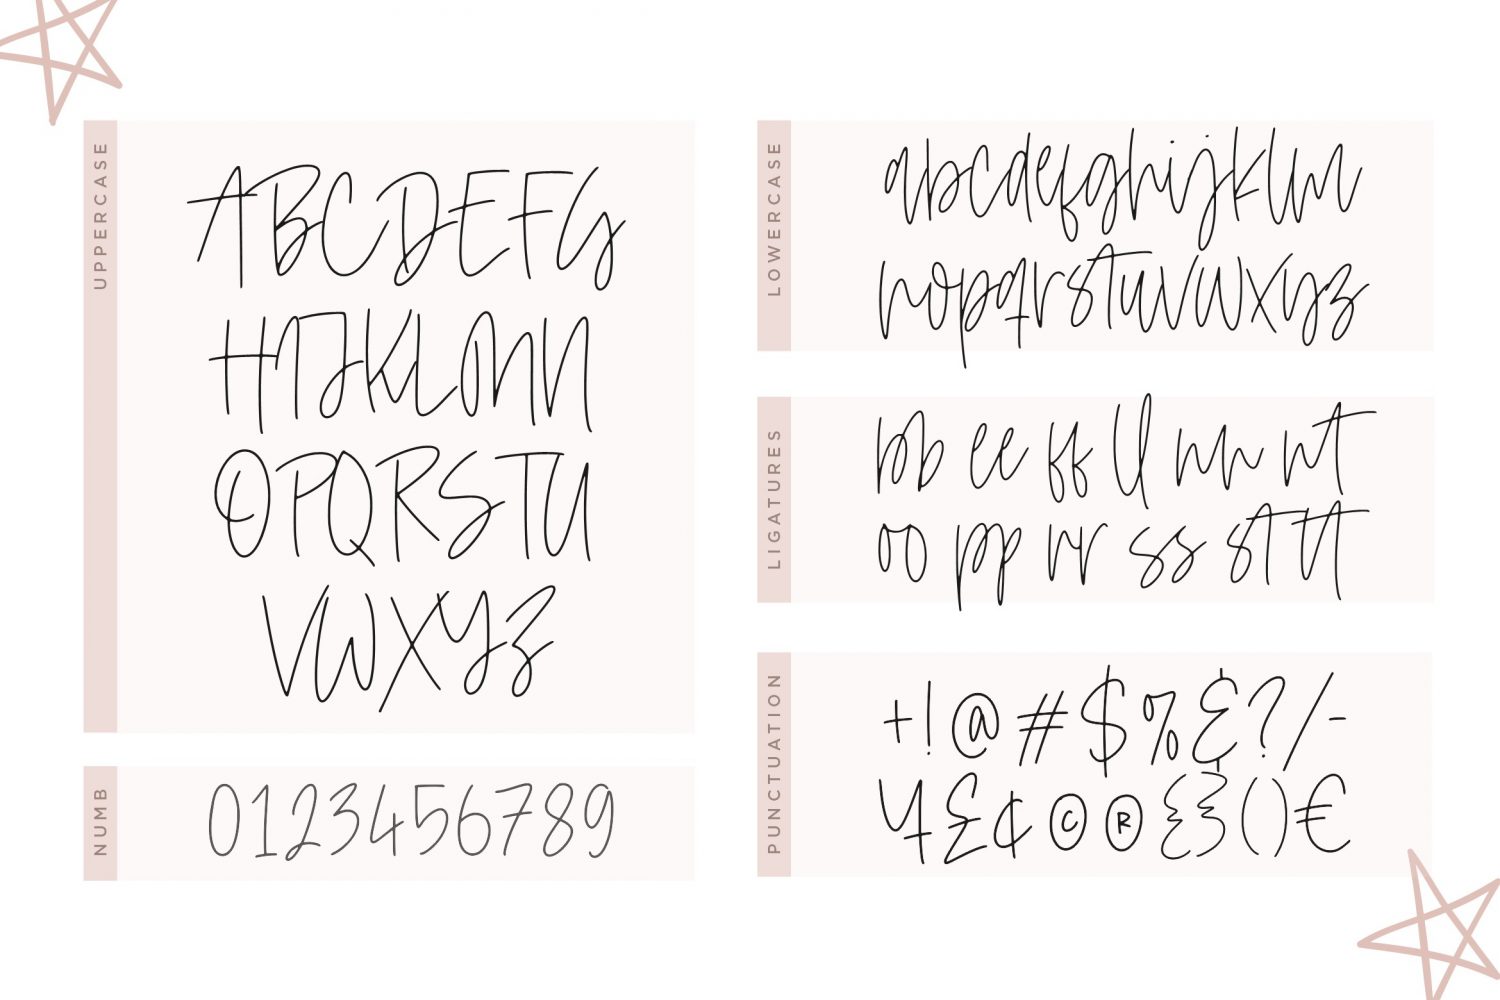 UPPERCASE
ABCDEFG
HIJKLMN
OPQRSTU
VWXYZ
NUMB
0123456789
LOWERCASE
abcdefghijklm
nopqrstuvwxyz
LIGATURES
bb ee ff ll nn nt
oo pp rr ss st tt
PUNCTUATION
+!@#$%&?/-
¥£¢©®{}()€